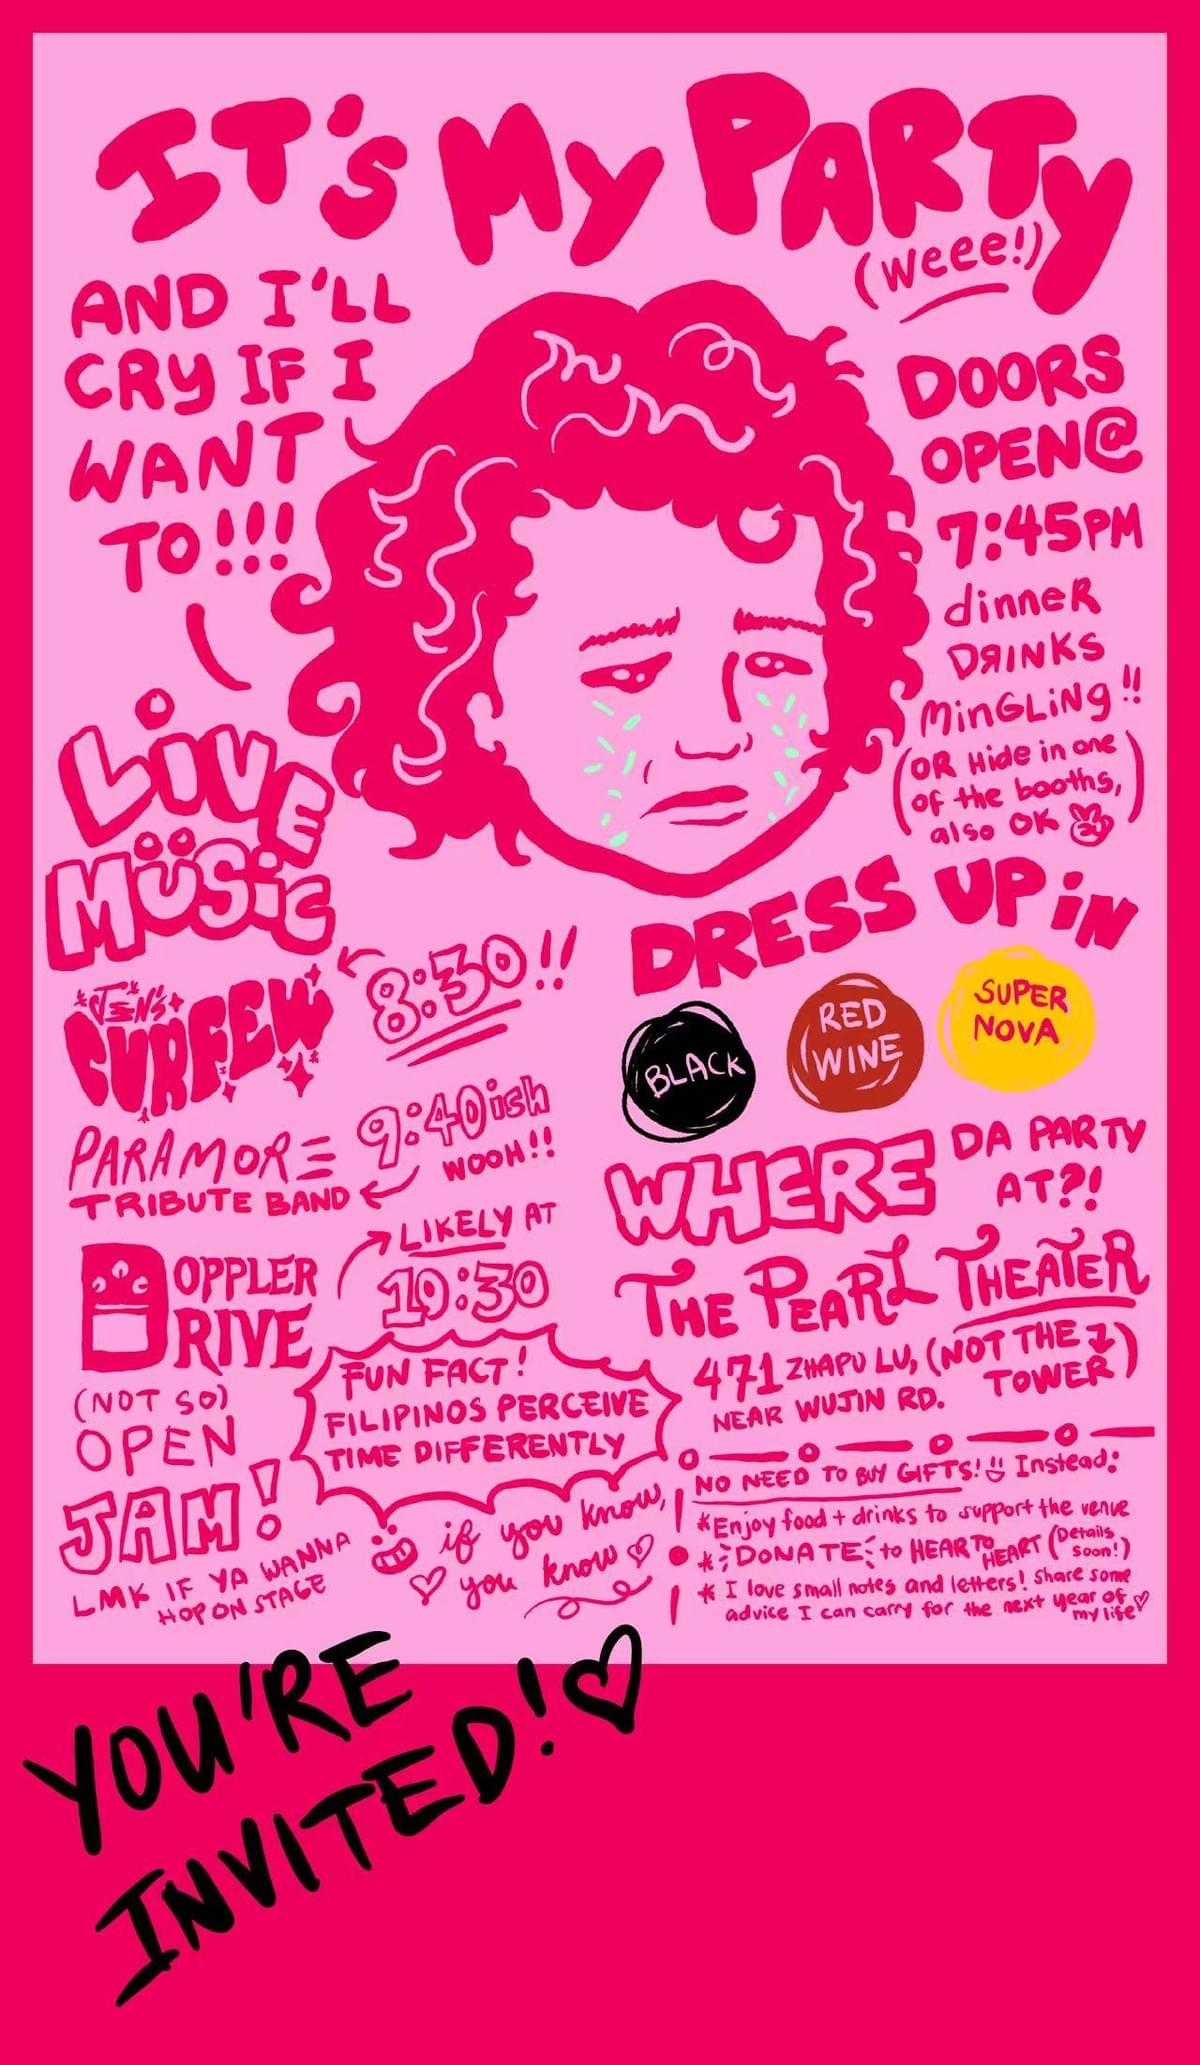 IT'S MY PARTY
(weee!)
AND I'LL
CRY IF I
WANT
TO!!!
DOORS
OPEN@
7:45PM
dinneR
DRINKS
MinGLiNg!!
(OR Hide in one
of the booths,
also OK)
LiVE
MÜSiC
JEN'S
CURFEW
8:30!!
PARAMORE
TRIBUTE BAND
9:40ish
WOOH!!
DOPPLER
DRIVE
LIKELY AT
10:30
FUN FACT!
FILIPINOS PERCEIVE
TIME DIFFERENTLY
if you know,
you know
(NOT SO)
OPEN
JAM!
LMK IF YA WANNA
HOP ON STAGE
DRESS UP iN
BLACK
RED
WINE
SUPER
NOVA
WHERE DA PARTY
AT?!
THE PEARL THEATER
471 ZHAPU LU, (NOT THE
TOWER)
NEAR WUJIN RD.
NO NEED TO BUY GIFTS! Instead:
*Enjoy food + drinks to support the venue
* DONATE to HEART TO HEART (Details
soon!)
* I love small notes and letters! share some
advice I can carry for the next year of
my life
YOU'RE
INVITED!